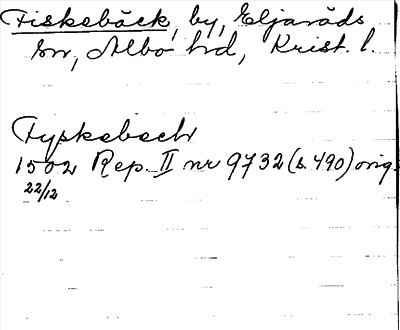 Fiskebäck, by, Eljaröds
sn, Albo hd, Krist. l.
Fyskebech
1502 Rep. II nr 9732 (s. 490) orig.
22/12